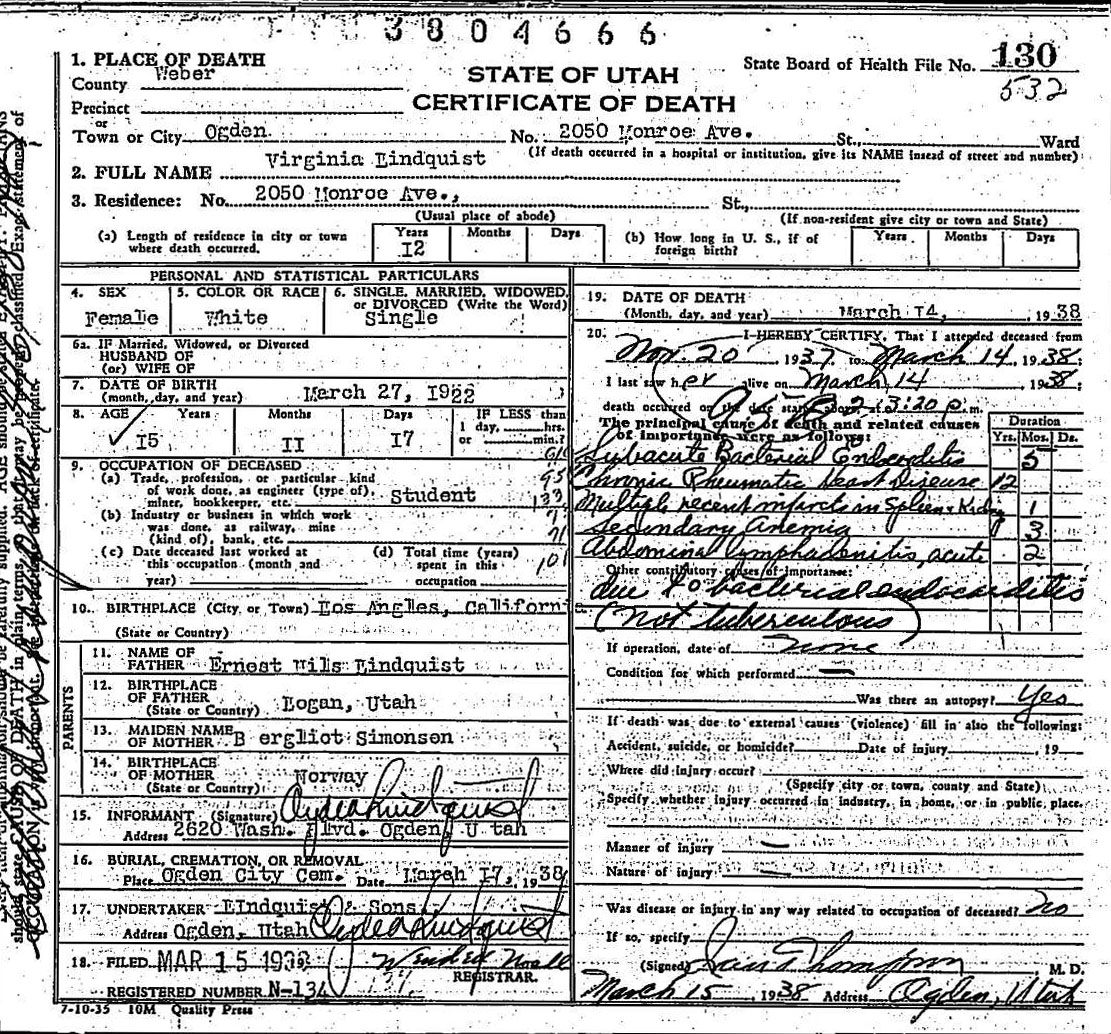 3804666
1. PLACE OF DEATH
County Weber
Precinct
or
Town or City Ogden No. 2050 Monroe Ave. St., Ward
STATE OF UTAH
CERTIFICATE OF DEATH
State Board of Health File No. 130
532
(If death occurred in a hospital or institution, give its NAME insead of street and number)
2. FULL NAME Virginia Lindquist
3. Residence: No. 2050 Monroe Ave., St.,
(Usual place of abode) (If non-resident give city or town and State)
(a) Length of residence in city or town where death occurred. Years 12 Months Days
(b) How long in U. S., if of foreign birth? Years Months Days
PERSONAL AND STATISTICAL PARTICULARS
4. SEX Female
5. COLOR OR RACE White
6. SINGLE, MARRIED, WIDOWED, or DIVORCED (Write the Word) Single
6a. IF Married, Widowed, or Divorced
HUSBAND OF
(or) WIFE OF
7. DATE OF BIRTH
(month, day, and year) March 27, 1922
8. AGE Years 15 Months 11 Days 17 IF LESS than 1 day, hrs. or min.?
9. OCCUPATION OF DECEASED
(a) Trade, profession, or particular kind
of work done, as engineer (type of),
miner, bookkeeper, etc. Student
(b) Industry or business in which work
was done, as railway, mine
(kind of), bank, etc.
(c) Date deceased last worked at
this occupation (month and
year)
(d) Total time (years)
spent in this
occupation
10. BIRTHPLACE (City or Town) Los Angles, California
(State or Country)
PARENTS
11. NAME OF
FATHER Ernest Wils Lindquist
12. BIRTHPLACE
OF FATHER
(State or Country) Logan, Utah
13. MAIDEN NAME
OF MOTHER B ergliot Simonsen
14. BIRTHPLACE
OF MOTHER
(State or Country) Norway
15. INFORMANT (Signature) Clyde Lindquist
Address 2620 Wash. Blvd. Ogden, U tah
16. BURIAL, CREMATION, OR REMOVAL
Place Ogden City Cem. Date March 17, 1938
17. UNDERTAKER Lindquist & Sons
Address Ogden, Utah Clyde Lindquist
18. FILED MAR 15 1938
REGISTRAR.
REGISTERED NUMBER N-134
7-10-35 10M Quality Press
19. DATE OF DEATH
(Month, day, and year) March 14, 1938
20. I HEREBY CERTIFY, That I attended deceased from
Nov. 20 1937 to March 14 1938
I last saw her alive on March 14 1938
death occurred on the date stated above, at 3:20 p.m.
The principal cause of death and related causes
of importance were as follows:
Duration
Yrs. Mos. Ds.
Subacute Bacterial Endocarditis 5
Chronic Rheumatic Heart Disease 12
Multiple recent infarcts in Spleen & Kidney 1
Secondary Anemia 3
Abdominal lymphadenitis, acute 2
Other contributory causes of importance:
due to bacterial endocarditis
(not tuberculous)
If operation, date of none
Condition for which performed
Was there an autopsy? Yes
If death was due to external causes (violence) fill in also the following:
Accident, suicide, or homicide? Date of injury , 19
Where did injury occur?
(Specify city or town, county and State)
Specify whether injury occurred in industry, in home, or in public place.
Manner of injury
Nature of injury
Was disease or injury in any way related to occupation of deceased? No
If so, specify
(Signed) Thompson M. D.
March 15 1938 Address Ogden, Utah